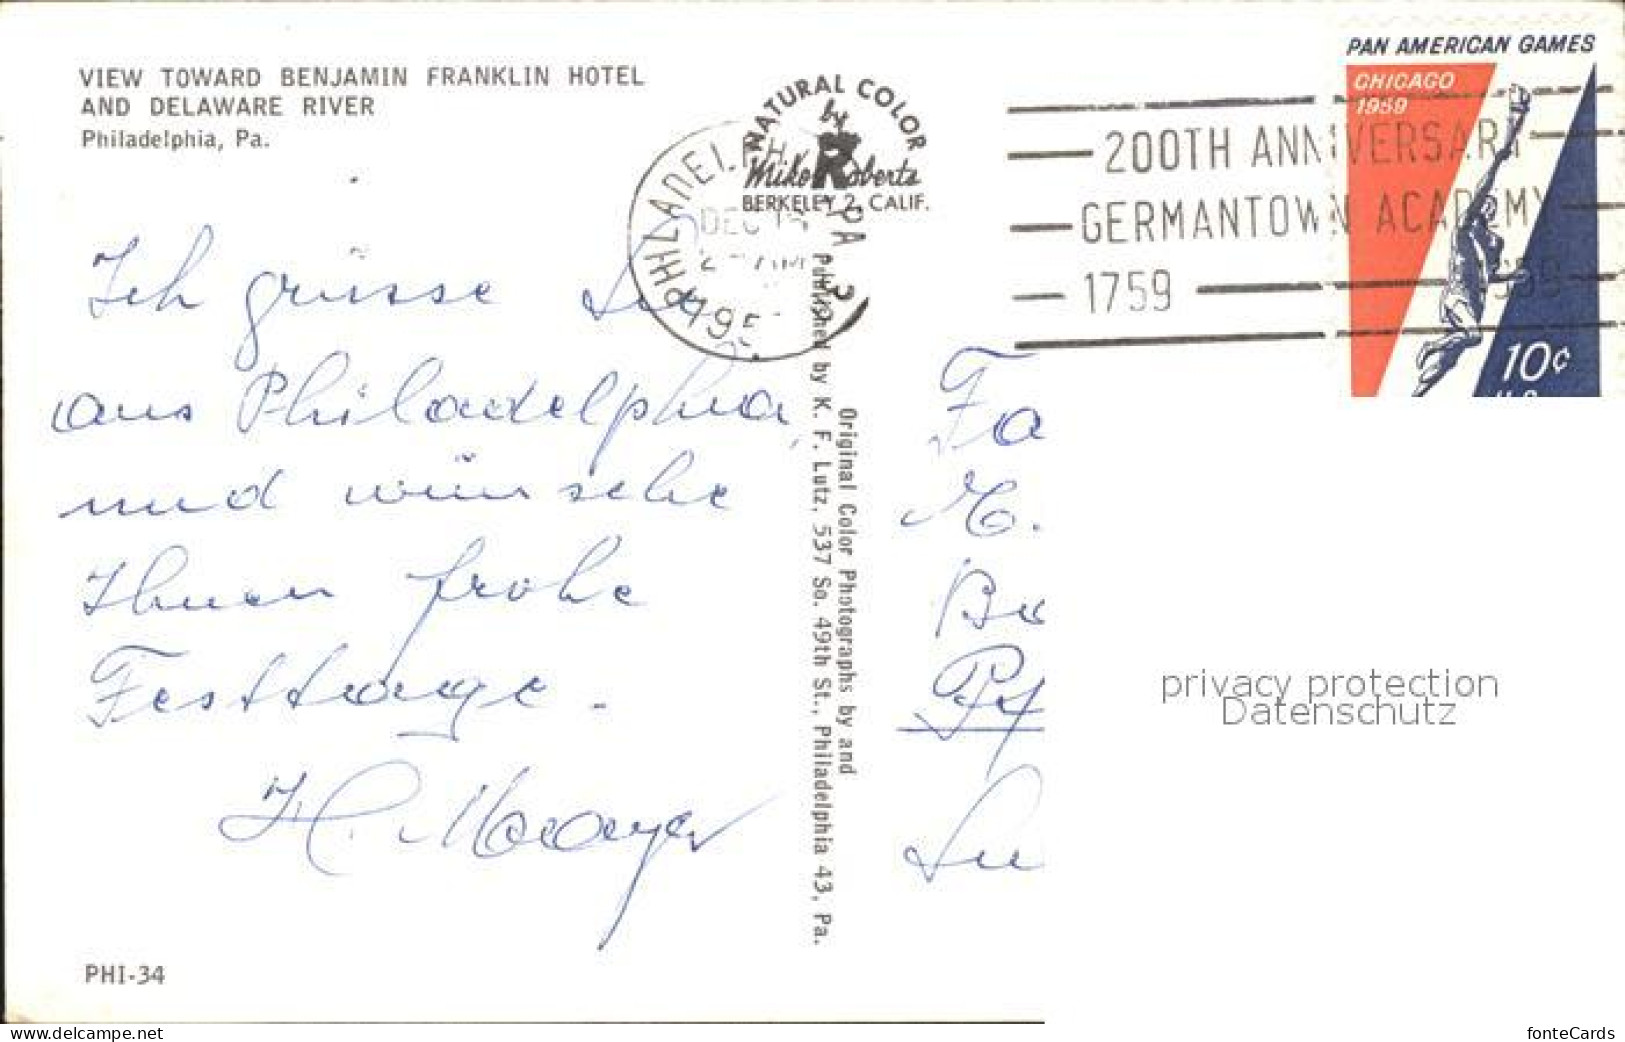 VIEW TOWARD BENJAMIN FRANKLIN HOTEL
AND DELAWARE RIVER
Philadelphia, Pa.
Ich grüsse Sie
aus Philadelphia,
und wünsche
Ihnen frohe
Festtage.
PHI-34
NATURAL COLOR
by
Mike Roberts
BERKELEY 2, CALIF.
PHILADELPHIA PA
DEC 15
AM
195
Original Color Photographs by and
Published by K. F. Lutz, 537 So. 49th St., Philadelphia 43, Pa.
200TH ANNIVERSARY
GERMANTOWN ACADEMY
1759 1959
PAN AMERICAN GAMES
CHICAGO
1959
10¢
U.S.
privacy protection
Datenschutz
www.delcampe.net
fonteCards